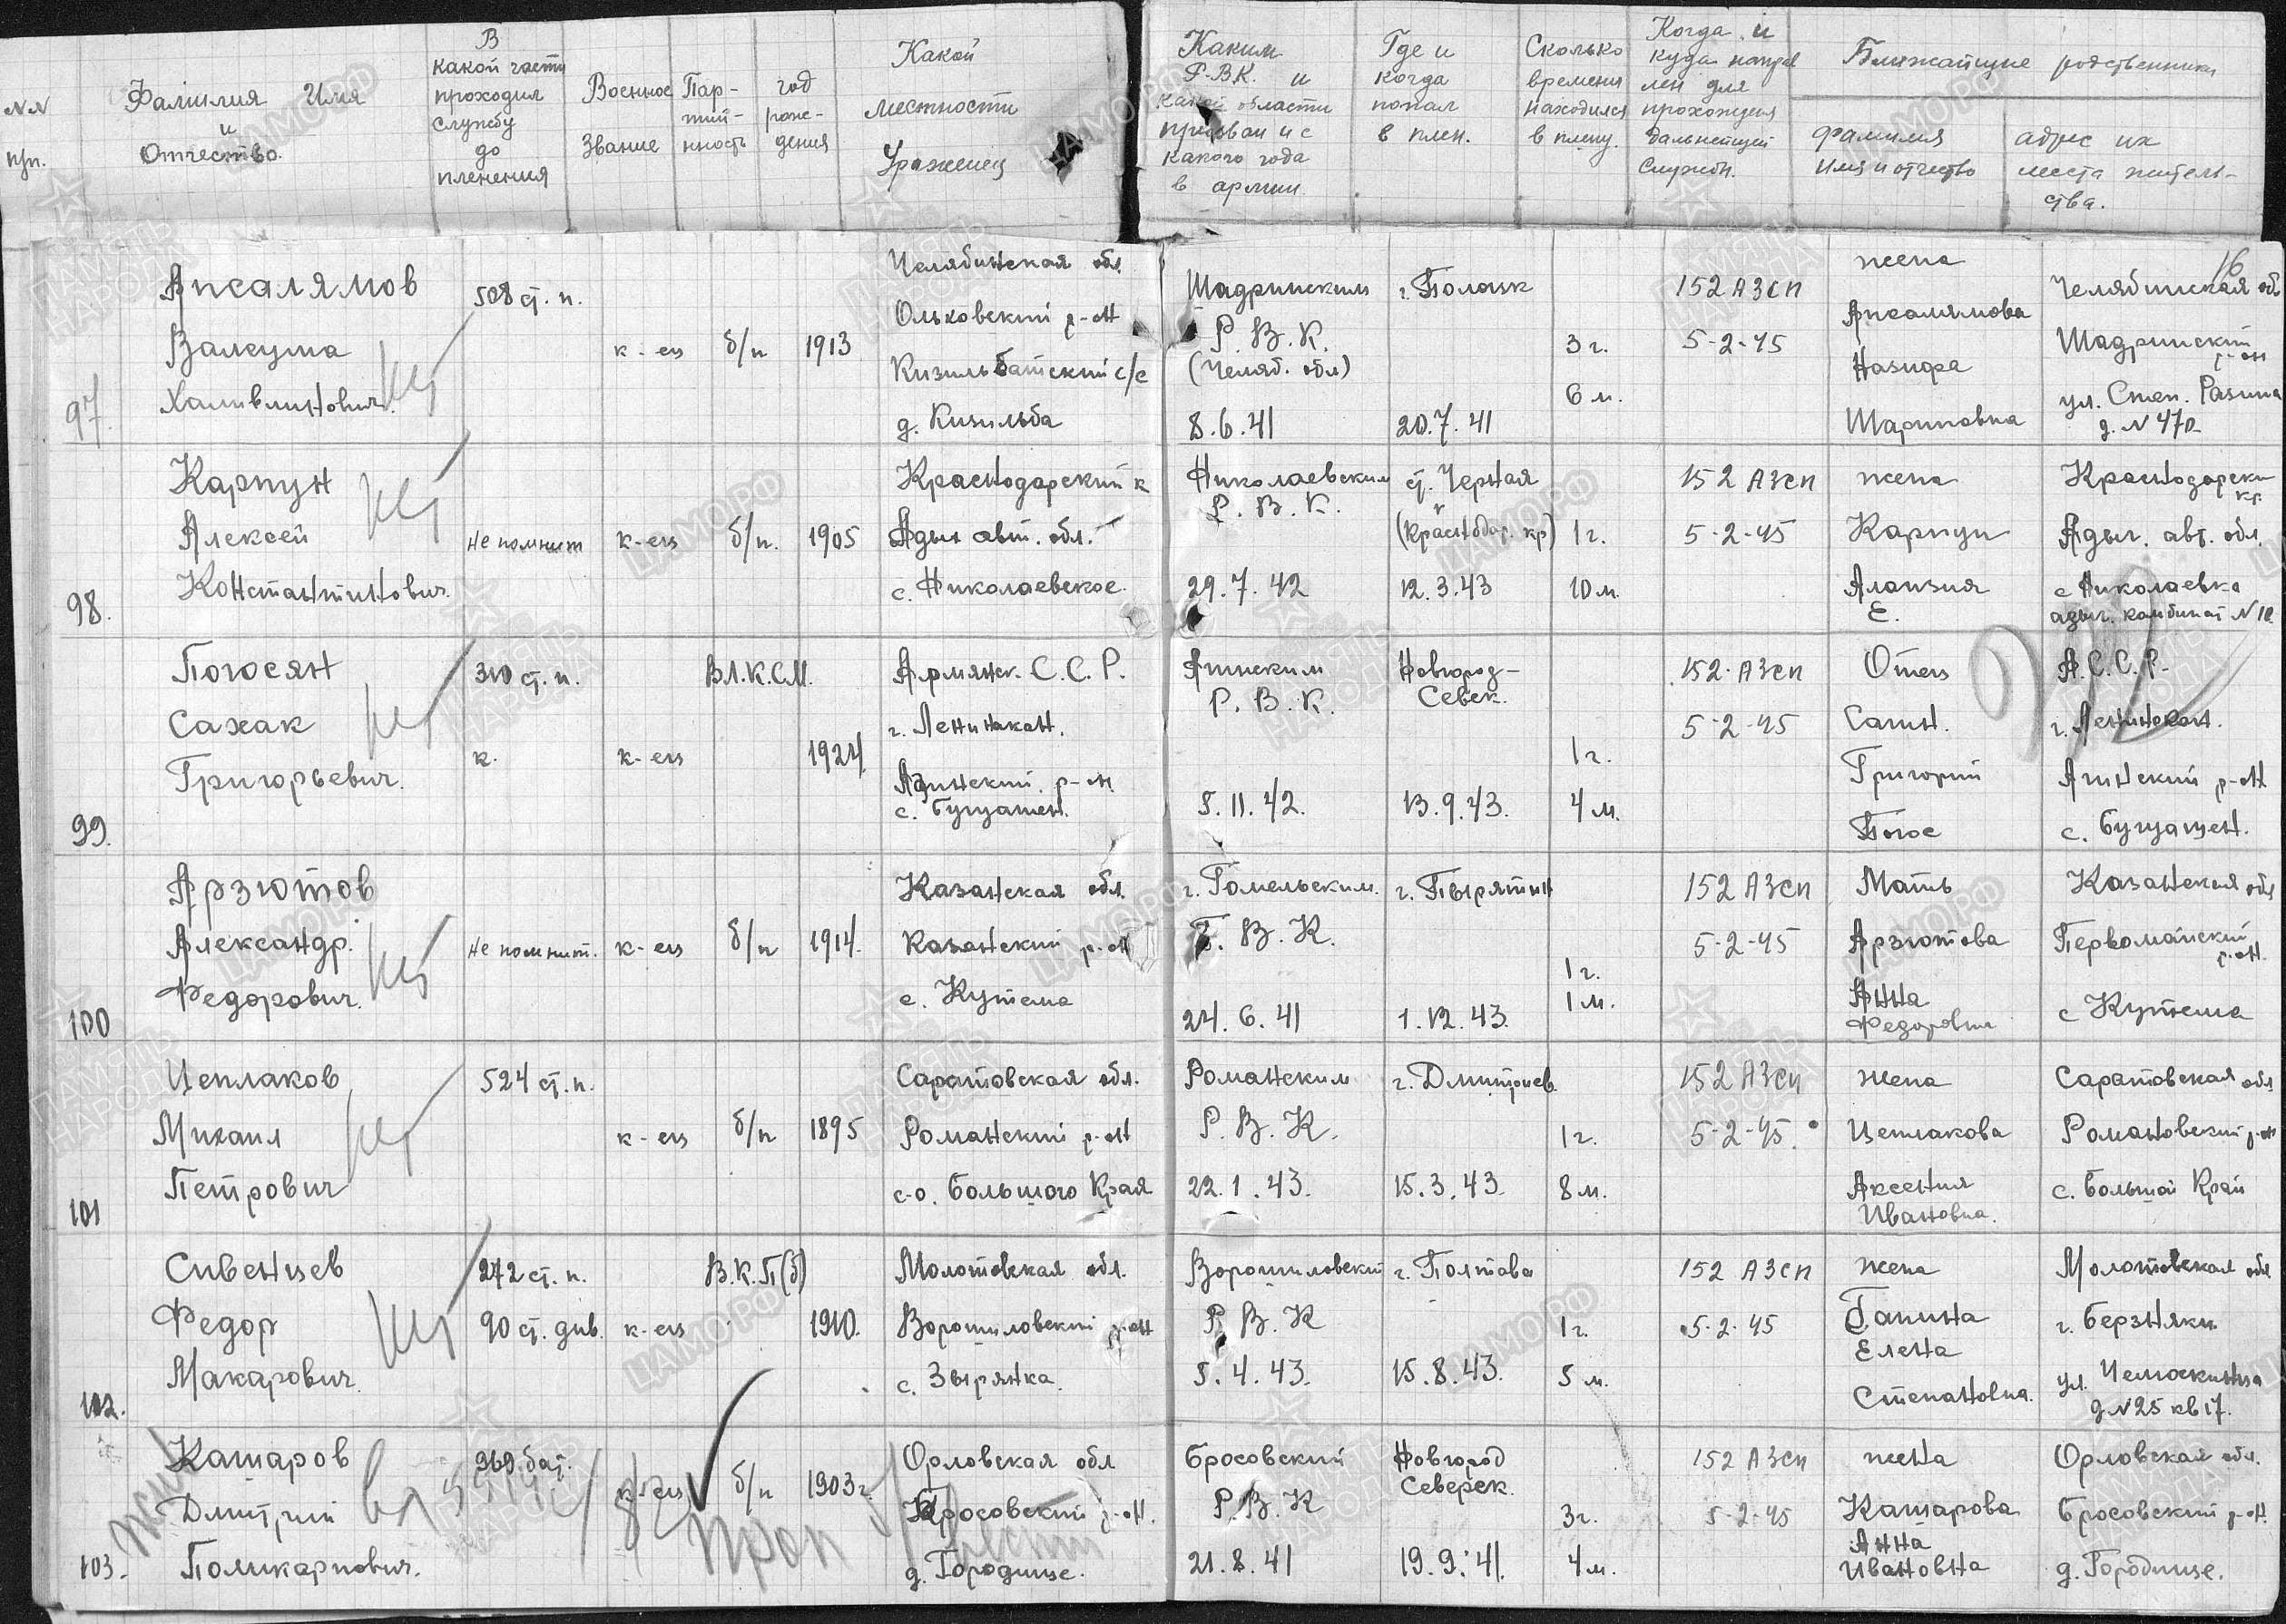 №№ п/п.
Фамилия Имя
и
Отчество.
В
какой части
проходил
службу
до
пленения
Военное
Звание
Пар-
тий-
ность
год
рож-
дения
Какой
местности
Уроженец
Каким
Р.В.К. и
какой области
призван и с
какого года
в армии.
Где и
когда
попал
в плен.
Сколько
времени
находился
в плену.
Когда и
куда направ
лен для
прохождения
дальнейшей
службы.
Ближайшие родственники
фамилия
имя и отчество
адрес их
места житель-
ства.
16
97.
Апсалямов
Валеума
508 ст. п.
к-ец
б/п
1913
Челябинская обл.
Ольховский р-он
Кизильбатский с/с
д. Кизильба
Шадринским
Р.В.К.
(Челяб. обл)
8.6.41
г. Полоцк
20.7.41
3 г.
6 м.
152 АЗСП
5-2-45
жена
Апсалямова
Назифа
Шариповна
Челябинская об
Шадринский
р-он
ул. Степ. Разина
д. № 470
98.
Карпун
Алексей
Константинович.
не помнит
к-ец
б/п.
1905
Краснодарский к
Адыг авт. обл.
с. Николаевское.
Николаевским
Р.В.К.
29.7.42
ст. Черная
(Краснодар. кр)
12.3.43
1 г.
10 м.
152 АЗСП
5-2-45
жена
Карпун
Алаизия
Е.
Краснодарски
кр.
Адыг. авт. обл.
с Николаевка
адыг. комбинат №10.
99.
Погосян
Сахак
Григорьевич.
310 ст. п.
к.
к-ец
В.Л.К.С.М.
1924
Армянск. С.С.Р.
г. Ленинакан.
Агинский. р-он
с. Бугдашен.
Агинским
Р.В.К.
5.11.42.
Новгород-
Север.
13.9.43.
1 г.
4 м.
152. АЗСП
5-2-45
Отец
Григорий
Погос
А.С.С.Р.
г. Ленинакан.
Агинский р-он
с. Бугдашен.
100
Арзютов
Александр.
Федорович.
не помнит.
к-ец
б/п
1914.
Казанская обл.
Казанский р-он
с. Кутема
г. Гомельским.
Г.В.К.
24.6.41
г. Пырятин
1.12.43.
1 г.
1 м.
152 АЗСП
5-2-45
Мать
Арзютова
Анна
Федоровна
Казанская обл
Первомайский
р-он.
с Кутема
101
Цеплаков
Михаил
Петрович
524 ст. п.
к-ец
б/п
1895
Саратовская обл.
Романский р-он
с-о. Большого Края
Романским
Р.В.К.
22.1.43.
г. Дмитриев.
15.3.43.
1 г.
8 м.
152 АЗСП
5-2-45.
жена
Цеплакова
Аксения
Ивановна.
Саратовская обл
Романовский р-он
с. Большой Край
102.
Сивенцев
Федор
Макарович.
272 ст. п.
90 ст. див.
к-ец
В.К.П(б)
1910.
Молотовская обл.
Ворошиловский р-он
с. Зырянка.
Ворошиловский
Р.В.К
5.4.43.
г. Полтава
15.8.43.
1 г.
5 м.
152 АЗСП
5-2-45
жена
Галина
Елена
Степановна.
Молотовская обл
г. Березняки
ул. Челюскинца
д №25 кв 17.
103.
Кашаров
Дмитрий
Поликарпович.
969 бат.
к-ец
б/п
1903 г.
Орловская обл
Бросовский р-он.
д. Городище.
Бросовский
Р.В.К
21.8.41
Новгород
Северск.
19.9.41.
3 г.
4 м.
152 АЗСП
5-2-45
жена
Кашарова
Анна
Ивановна
Орловская обл.
Бросовский р-он.
д. Городище.